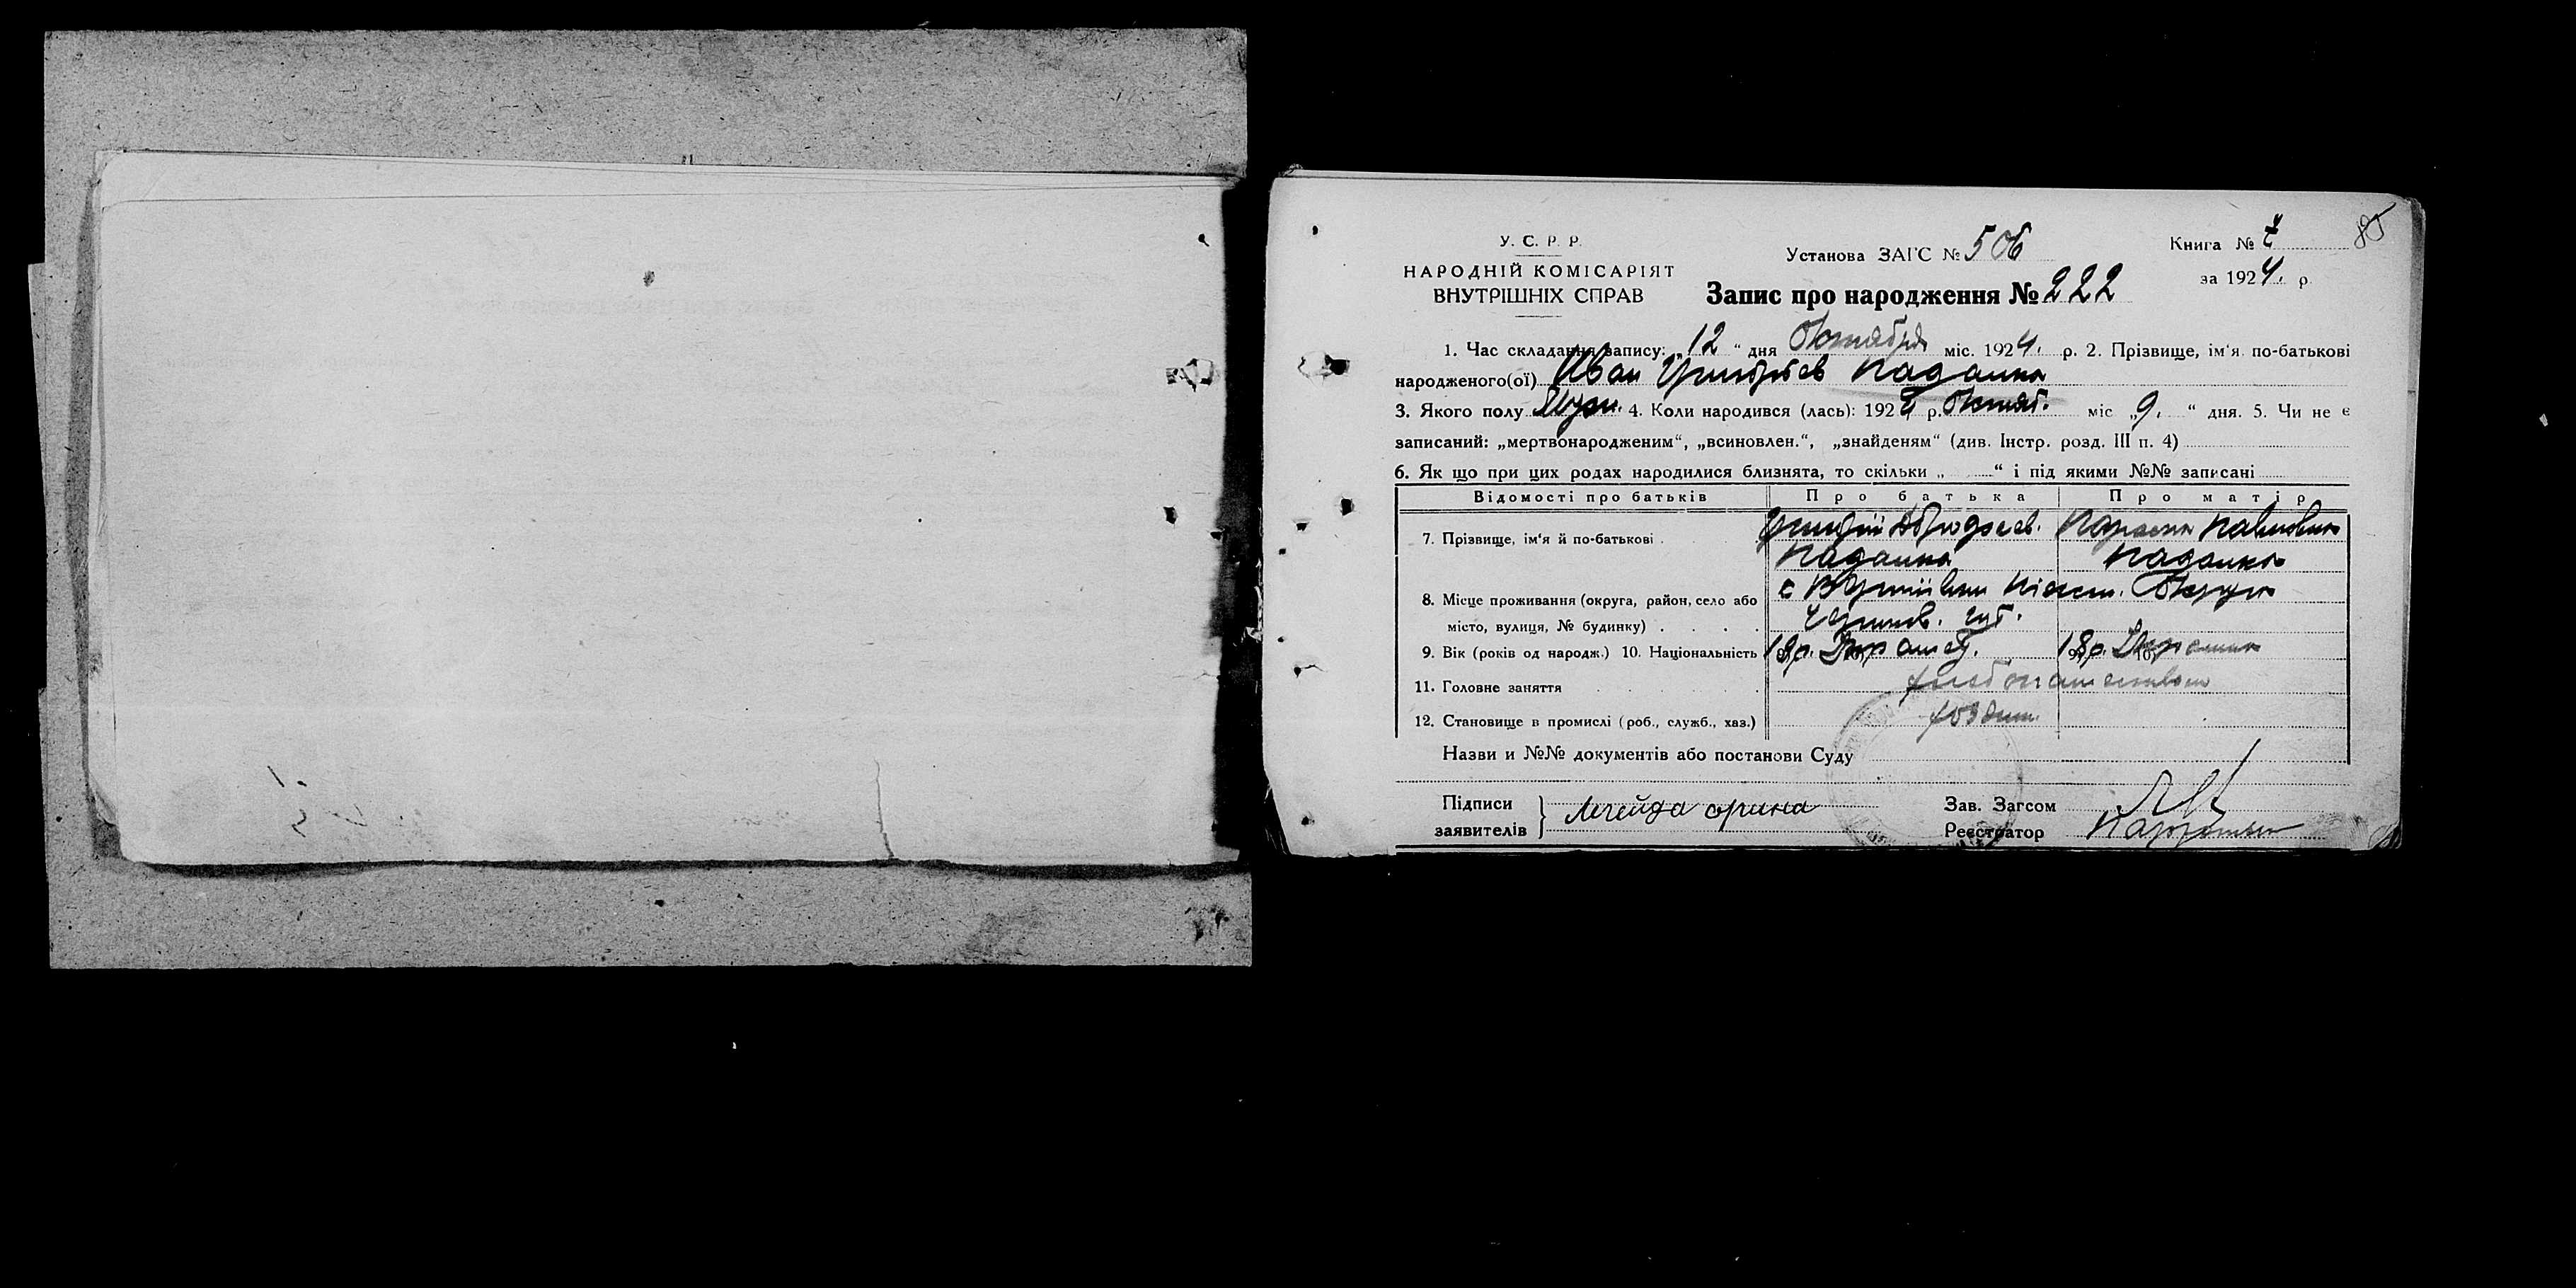 85
У. С. Р. Р.
НАРОДНІЙ КОМІСАРІЯТ
ВНУТРІШНІХ СПРАВ
Установа ЗАГС № 506
Запис про народження № 222
Книга № 7
за 1924. р.
1. Час складання запису: „12“ дня Октября міс. 1924. р. 2. Прізвище, ім'я по-батькові
народженого(ої) Иван Григорьев Кадашко
3. Якого полу Муж. 4. Коли народився (лась): 1924 р. Октяб. міс „9.“ дня. 5. Чи не є
записаний: „мертвонародженим“, „всиновлен.“, „знайденям“ (див. Інстр. розд. III п. 4)
6. Як що при цих родах народилися близнята, то скільки „ “ і під якими №№ записані
Відомості про батьків Про батька Про матір
7. Прізвище, ім'я й по-батькові Григорій Параска Павловна
8. Місце проживання (округа, район, село або с Ніжин. Округи
місто, вулиця, № будинку) Черниг. губ.
9. Вік (років од народж.) 10. Національність
11. Головне заняття хлебопашеством
12. Становище в промислі (роб., служб., хаз.) хозяин.
Назви и №№ документів або постанови Суду
Підписи
заявителів } Легейда орина
Зав. Загсом
Реєстратор